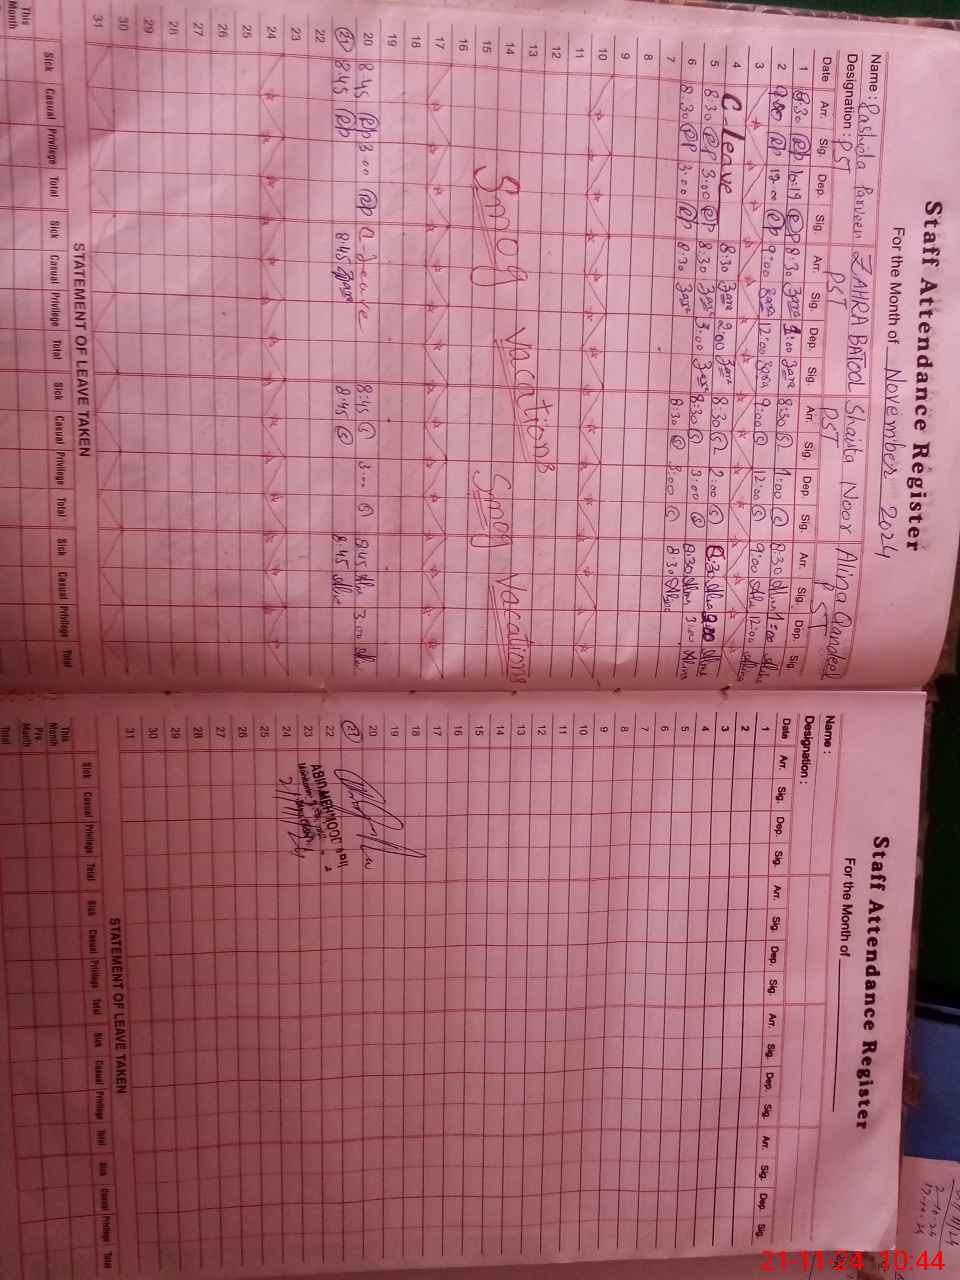 Staff Attendance Register
For the Month of November 2024
Name : Rashida Parveen ZAHRA BATOOL Shaista Noor Alina Qandeel
Designation : PST PST PST PST
Date Arr. Sig. Dep. Sig. Arr. Sig. Dep. Sig. Arr. Sig. Dep. Sig. Arr. Sig. Dep. Sig.
1 8:30 RP 8:30 Zara 1:00 Zara 8:30 1:00 8:30 Alina 1:00 Alina
2 9:00 RP 12:00 RP 9:00 Zara 12:00 Zara 9:00 12:00 9:00 Alina 12:00 Alina
3
4 C-Leave 8:30 Zara 2:00 Zara 8:30 2:00 8:30 Alina 2:00 Alina
5 8:30 RP 3:00 RP 8:30 Zara 3:00 Zara 8:30 3:00 8:30 Alina 3:00 Alina
6 8:30 RP 3:00 RP 8:30 Zara 8:30 3:00 8:30 Alina
7
8
9
10
11
12
13
14 Smog Vacations Smog Vacations
15
16
17
18
19
20 8:45 RP 3:00 RP C-Leave 8:45 3:00 8:45 Alina 3:00 Alina
21 8:45 RP 8:45 Zara 8:45 8:45 Alina
22
23
24
25
26
27
28
29
30
31
STATEMENT OF LEAVE TAKEN
Sick Casual Privilege Total Sick Casual Privilege Total Sick Casual Privilege Total Sick Casual Privilege Total
This Month
Staff Attendance Register
For the Month of
Name :
Designation :
Date Arr. Sig. Dep. Sig. Arr. Sig. Dep. Sig. Arr. Sig. Dep. Sig. Arr. Sig. Dep. Sig.
1
2
3
4
5
6
7
8
9
10
11
12
13
14
15
16
17
18
19
20
21
22
23 ABID MEHMOOD
24 21/11/24
25
26
27
28
29
30
31
STATEMENT OF LEAVE TAKEN
Sick Casual Privilege Total Sick Casual Privilege Total Sick Casual Privilege Total Sick Casual Privilege Total
This Month
Pre. Month
Total
21-11-24 10:44